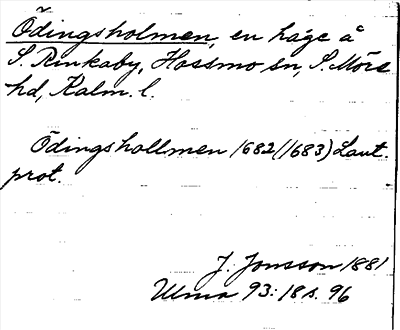 Ödingsholmen, en hage å
S. Rinkaby, Hossmo sn, S. Möre
hd, Kalm. l.
Ödingshollmen 1682 (1683) Lant.
prot.
J. Jonsson 1881
Ulma 93:18 s. 96